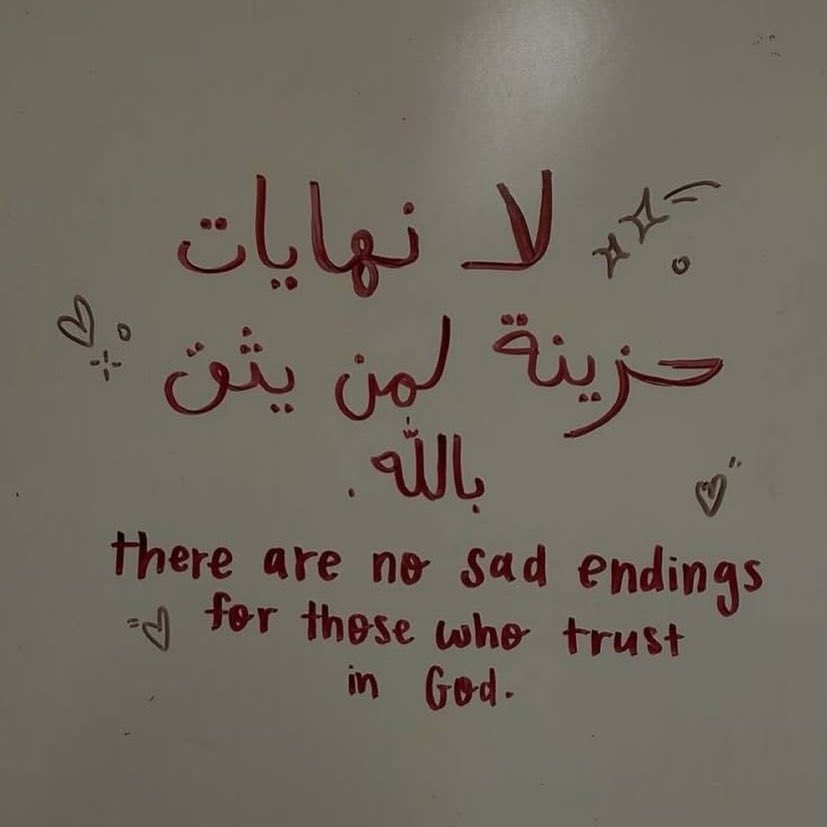 لا نهايات
حزينة لمن يثق
بالله .
there are no sad endings
for those who trust
in God.